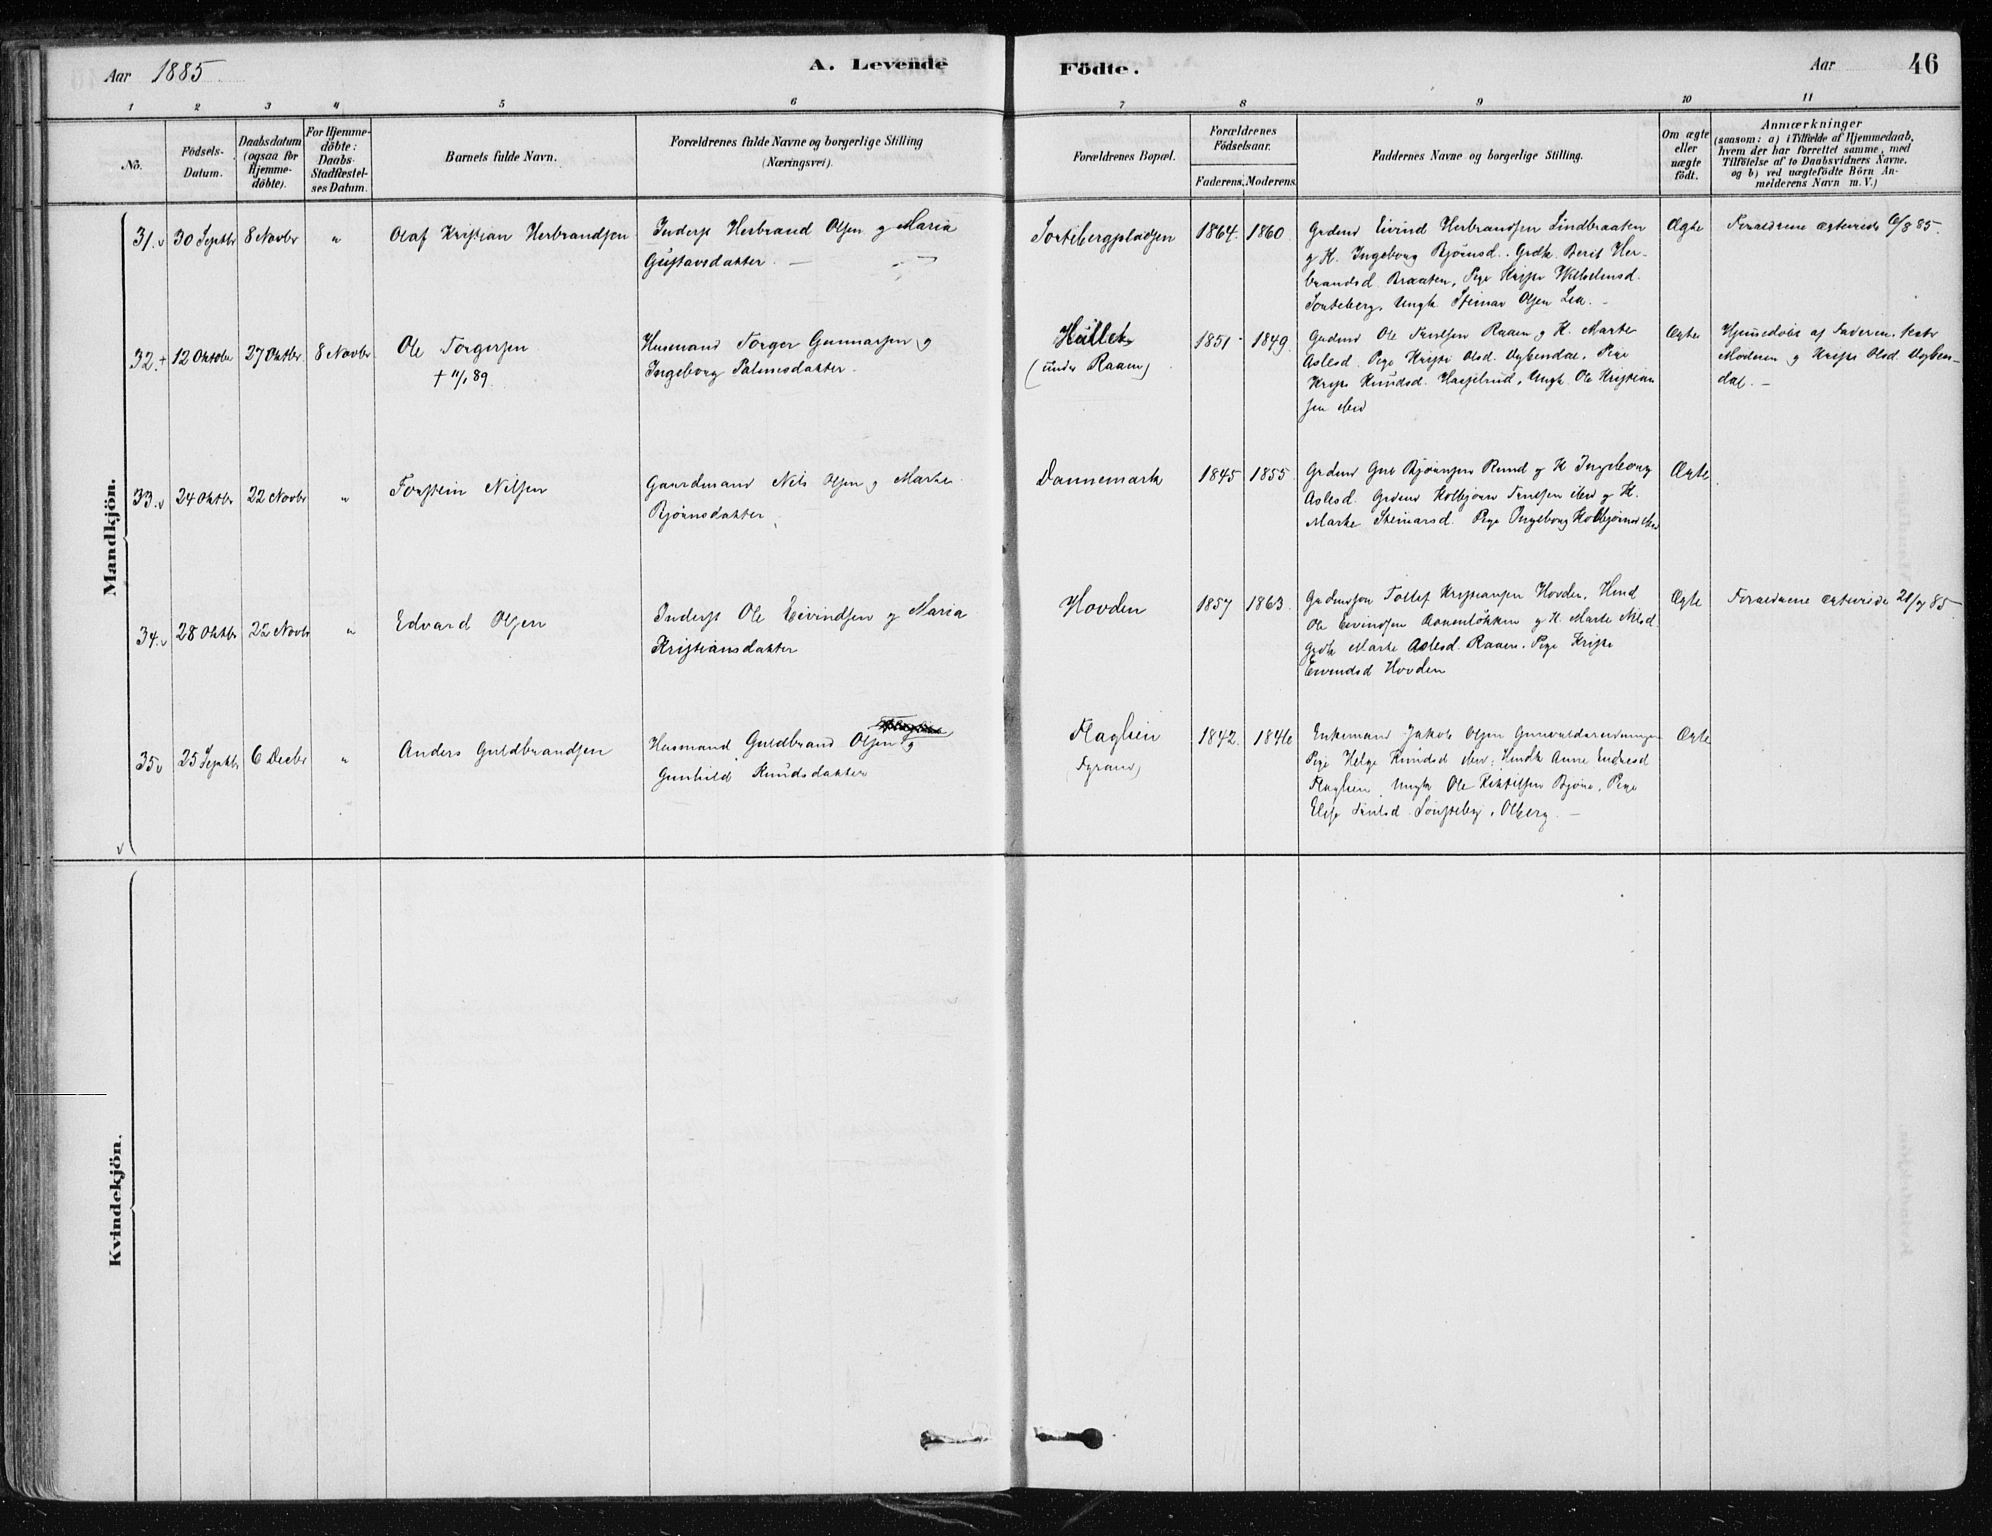 Aar 1885
A. Levende
Födte.
Aar
46
1 2 3 4 5 6 7 8 8 9 10 11
No.
Födsels-
Datum.
Daabsdatum
(ogsaa for
Hjemme-
döbte).
For Hjemme-
döbte:
Daabs-
Stadfæstel-
ses Datum.
Barnets fulde Navn.
Forældrenes fulde Navne og borgerlige Stilling
(Næringsvei).
Forældrenes Bopæl.
Forældrenes
Födselsaar.
Faderens. Moderens.
Faddernes Navne og borgerlige Stilling.
Om ægte
eller
uægte
födt.
Anmærkninger
(saasom: a) i Tilfælde af Hjemmedaab,
hvem der har forrettet samme, med
Tilföielse af to Daabsvidners Navne.
og b) ved uægtefödte Börn An-
melderens Navn m. V.)
Mandkjön.
31. v 30 Septbr 8 Novbr " Olaf Kristian Herbrandsen
Inderst Herbrand Olsen og Maria
Gustavsdatter. —
1864. 1860.
Grdmd Eivind Herbrandsen Lindbraaten
og K. Ingeborg Bjørnsd. Grdk. Berit Her-
brandsd. Braaten, Pige Kristi Wilhelmsd.
Ungk. Steinar Olsen Lia. —
Ægte
Forældrene ægteviede 6/8 85.
32. + 12 Oktober 27 Oktbr. 8 Novbr Ole Torgersen
+ 11/1 89.
Husmand Torger Gunnarsen og
Ingeborg Palmesdatter.
(under Raaen)
1851 1849
Grdmd Ole Truls Raaen og K. Marte
Aslesd. Pige Kristi Olsd. Pige
Kristi Knudsd. Ungk. Ole Kristian
sen
Ægte
Hjemmedøbt af Faderen. Test:
Moderen og Kristi Olsd.
dal. —
33. v 24 Oktbr 22 Novbr " Torstein Nilsen
Gaardmand Nils Olsen og Marte
Bjørnsdatter.
Dannemark
1845 1855
Grdmd og K Ingeborg
Aslesd. Grdmd Kolbjørn og K.
Marte Steinarsd. Pige Ingeborg Kolbjørnsd
Ægte
34. v 28 Oktbr 22 Novbr " Edvard Olsen
Inderst Ole Eivindsen og Maria
Kristiansdatter
Hovden
1857 1863.
Tollef Kristiansen Hovden, Hmd
Ole Eivindsen og K. Marte Nilsd.
Grdk Marte Aslesd. Raaen. Pige Kristi
Eivindsd Hovden
Ægte
Forældrene ægteviede
35 v 25 Septbr 6 Decbr " Anders Guldbrandsen
Husmand Guldbrand Olsen og
Gunhild Knudsdatter
Flaglien
1842. 1846
Enkemand Jakob Olsen
Pige Helge Knudsd Anne Endresd
Flaglien Ungk Ole Kittilsen Bjøre. Pige
Ægte
v
Kvindekjön.